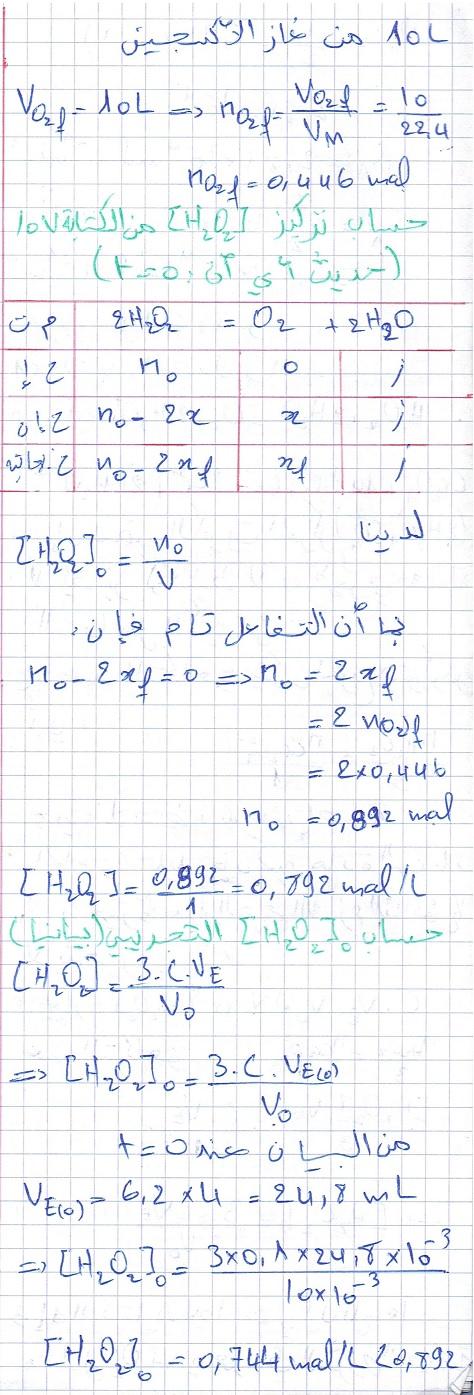 10L من غاز الأكسجين
V_{O₂f} = 10L ⟹ n_{O₂f} = V_{O₂f}/V_M = 10/22,4
n_{O₂f} = 0,446 mol
حساب تركيز [H₂O₂] من الكتابة 10V
(حديث أي أن t=0)
م ت | 2H₂O₂ = O₂ + 2H₂O
ح إ | n₀ | 0 | ز
ح إن | n₀ - 2x | x | ز
ح. نهائية | n₀ - 2xf | xf | ز
لدينا
[H₂O₂]₀ = n₀/V
بما أن التفاعل تام فإن:
n₀ - 2xf = 0 ⟹ n₀ = 2xf
= 2 n_{O₂f}
= 2×0,446
n₀ = 0,892 mol
[H₂O₂] = 0,892/1 = 0,892 mol/L
حساب [H₂O₂]₀ التجريبي (بيانيا)
[H₂O₂] = 3.C.V_E/V₀
⟹ [H₂O₂]₀ = 3.C.V_{E(0)}/V₀
من البيان عند t=0
V_{E(0)} = 6,2×4 = 24,8 mL
⟹ [H₂O₂]₀ = 3×0,1×24,8×10⁻³/10×10⁻³
[H₂O₂]₀ = 0,744 mol/L < 0,892